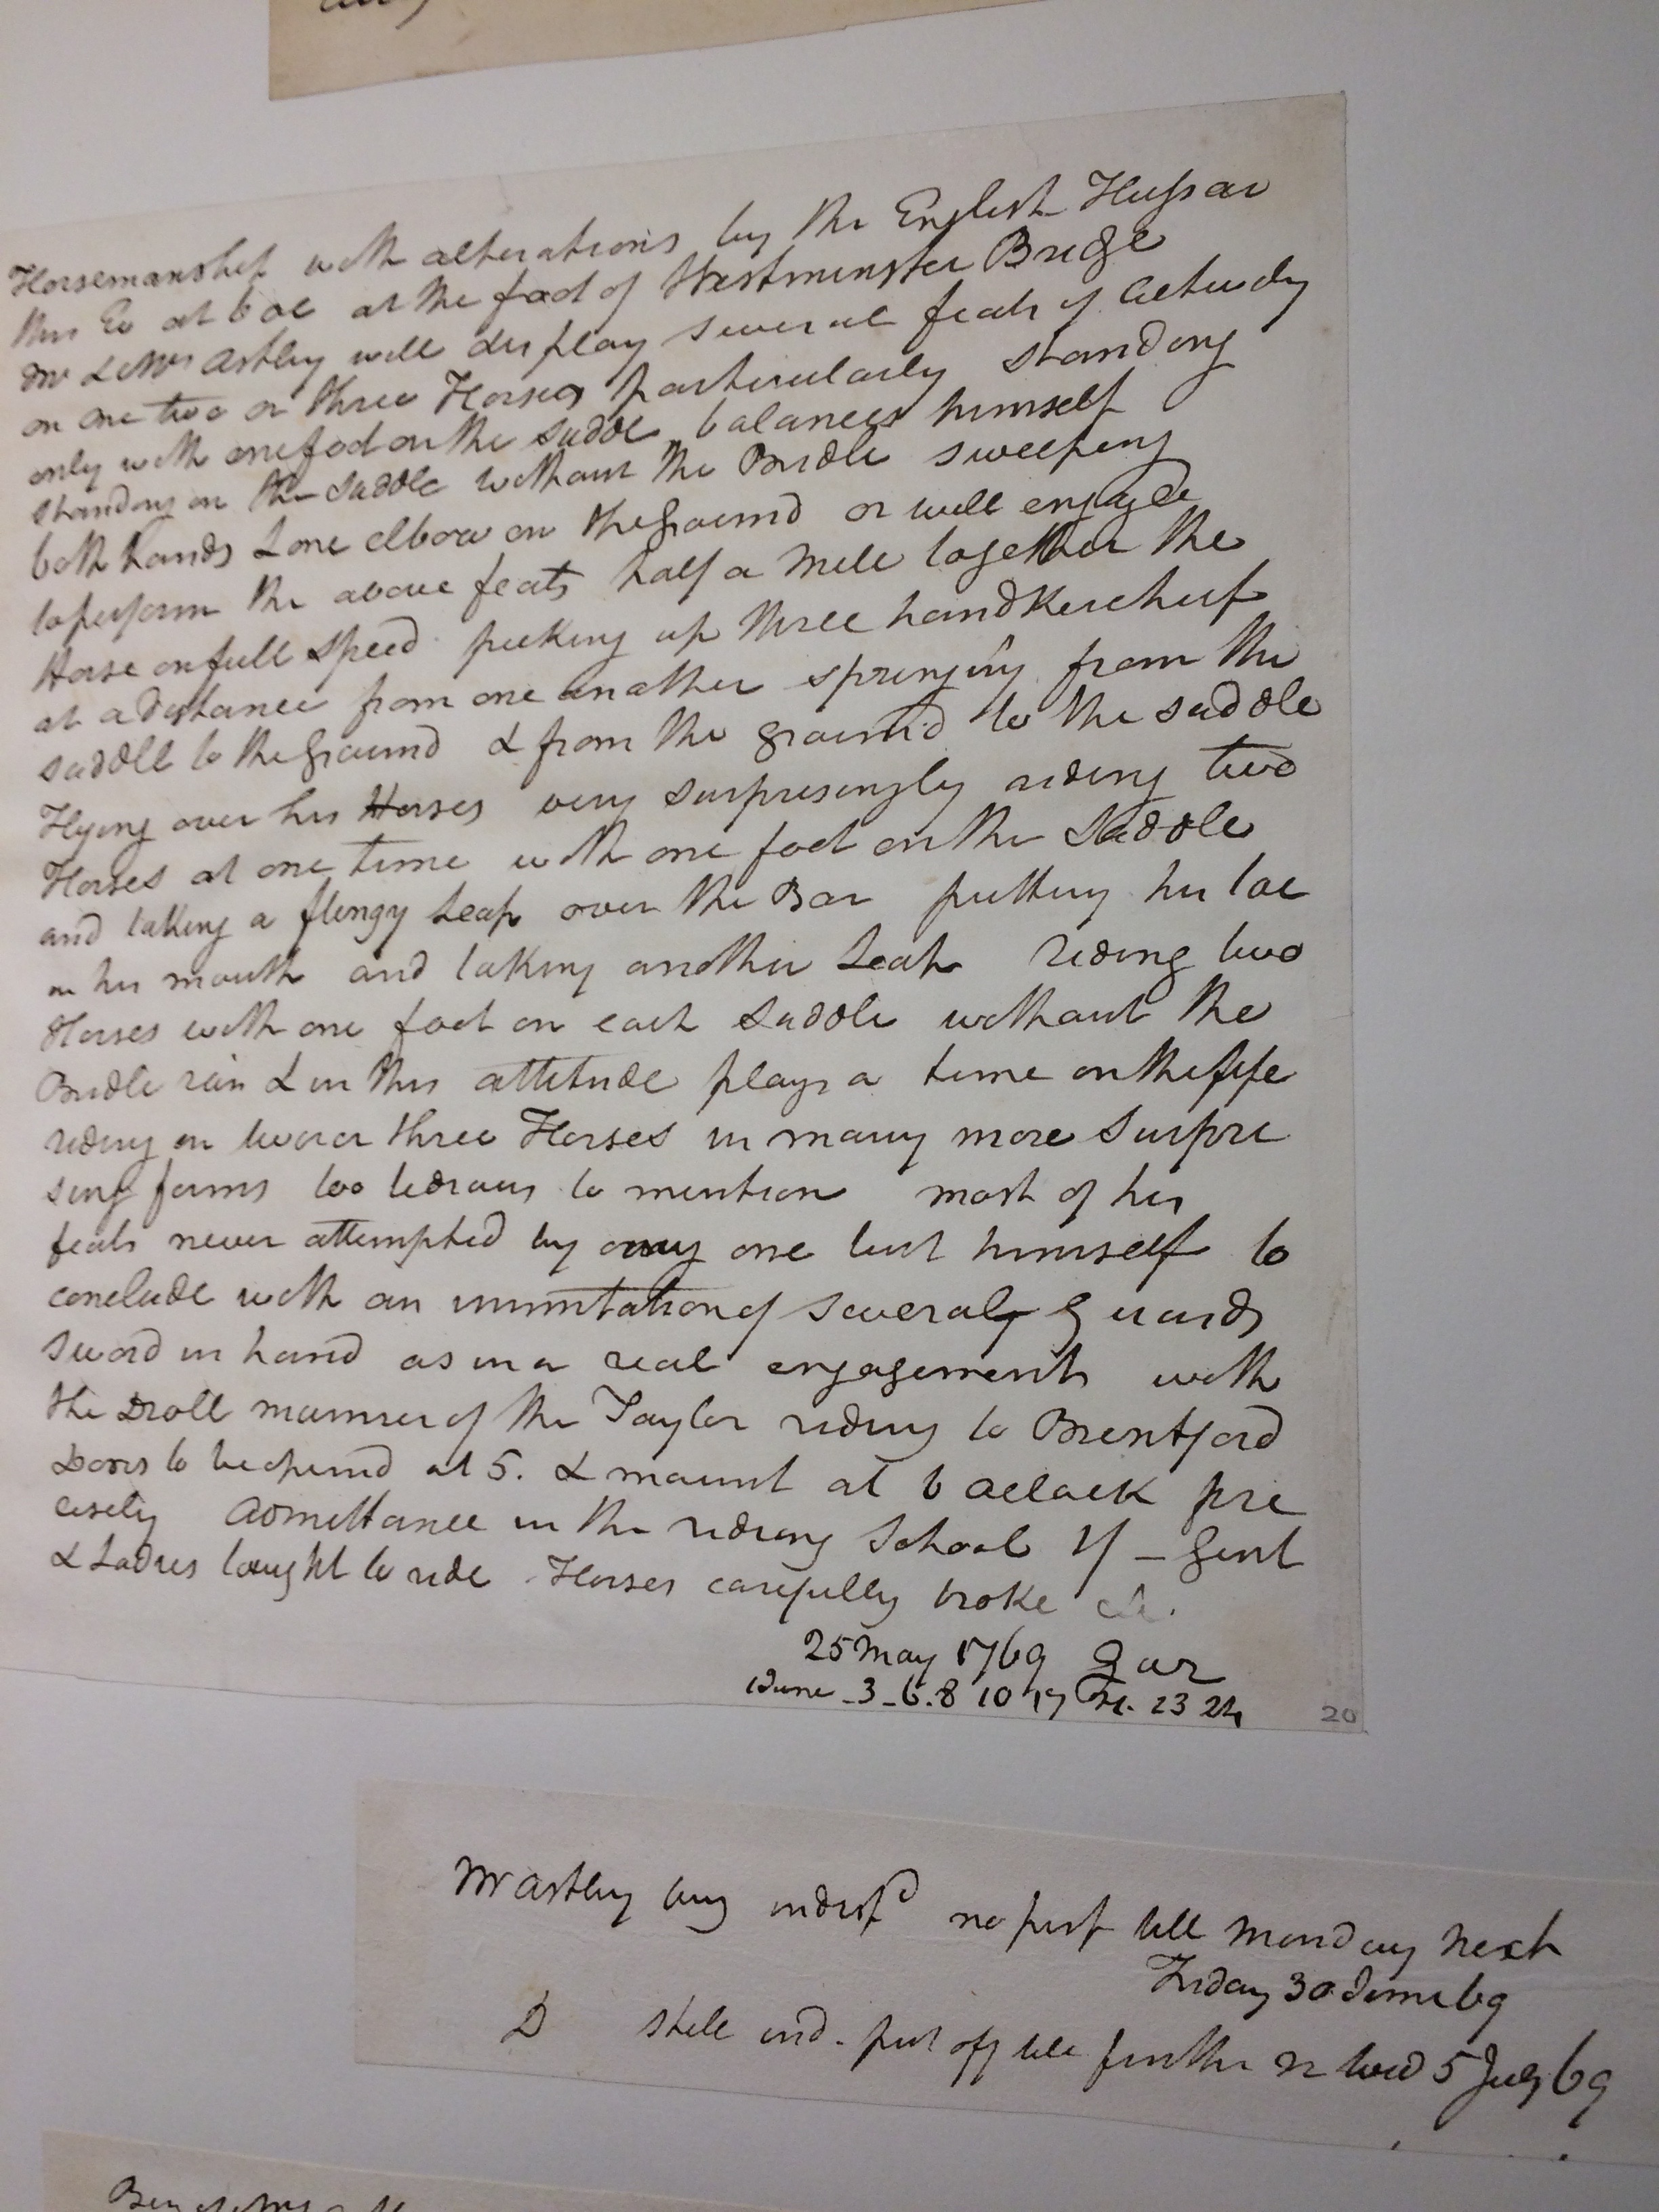 Horsemanship with alterations by the English Hussar
this Ev at 6 oc at the foot of Westminster Bridge
Mr & Mrs Astley will display several feats of Activity
on one two or three Horses particularly standing
only with one foot on the saddle balances himself
standing on the saddle without the Bridle sweeping
both hands & one elbow on the ground or will engage
to perform the above feats half a mile together the
Horse on full speed picking up three handkercheif
at a distance from one another springing from the
saddle to the ground & from the ground to the saddle
Flying over his Horses very surprisingly riding two
Horses at one time with one foot on the saddle
and taking a flyngy Leap over the Bar putting his toe
in his mouth and taking another Leap riding two
Horses with one foot on each saddle without the
Bridle rein & in this attitude plays a tune on the fife
riding on two or three Horses in many more surpri
sing forms too tedious to mention most of his
feats never attempted by any one but himself to
conclude with an immitation of several guards
sword in hand as in a real engagement with
the Droll manner of the Taylor riding to Brentford
Doors to be opened at 5. & mount at 6 aclock pre
cisely Admittance in the riding School 1/ - Gent
& Ladies taught to ride Horses carefully broke &c.
25 May 1769 Gaz
June - 3 - 6. 8 10 17 21. 23 24
20
Mr Astley being indisp^d no perf till Monday next
Friday 30 June 69
D still ind. put off till further n Wed 5 July 69